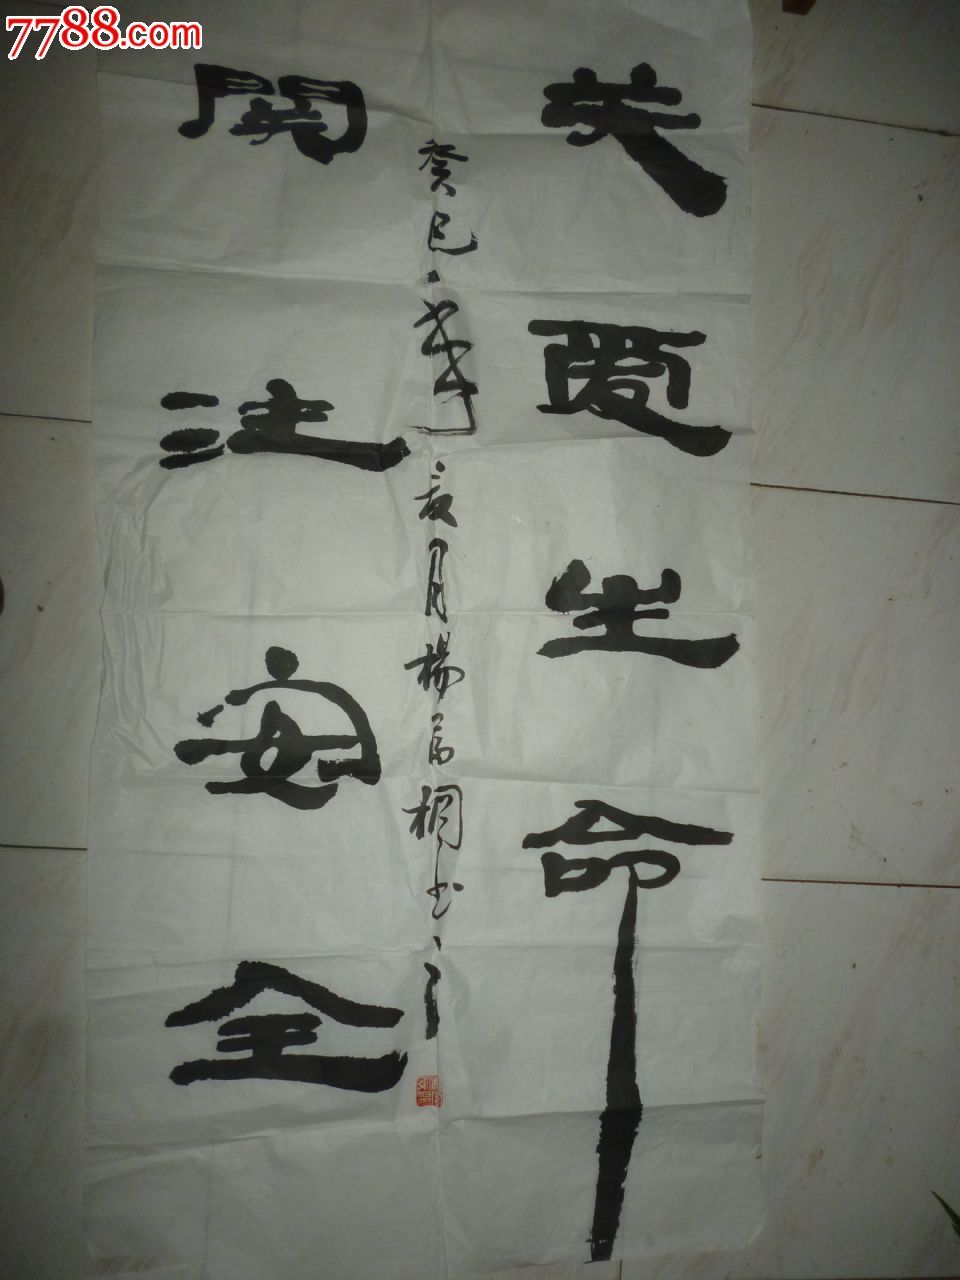 7788.com
关爱生命
関注安全
癸巳年
月楊
桐书